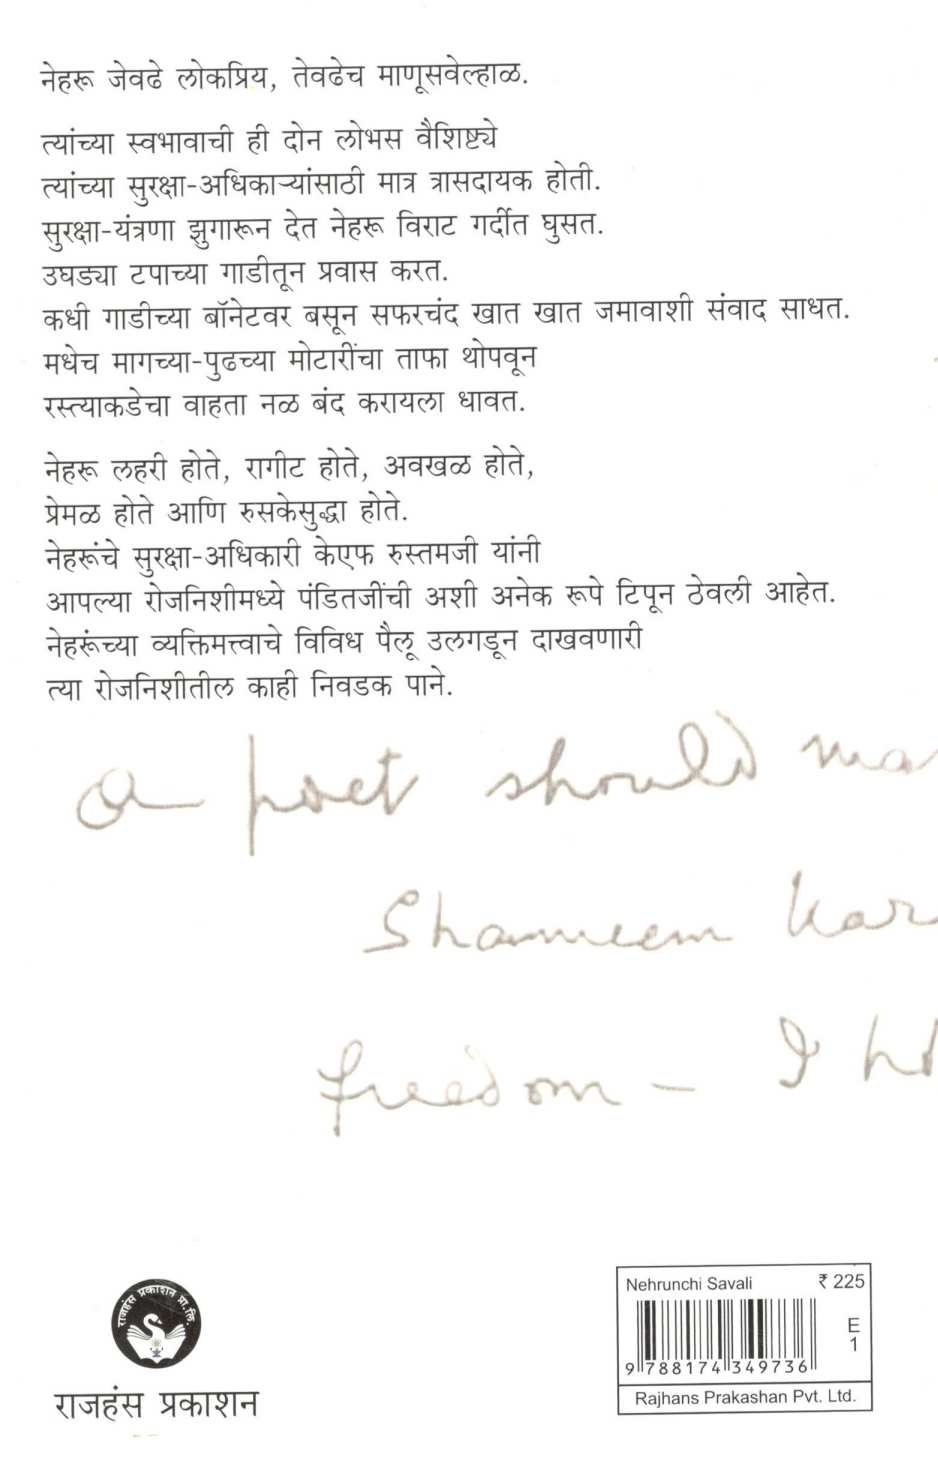 नेहरू जेवढे लोकप्रिय, तेवढेच माणूसवेल्हाळ.
त्यांच्या स्वभावाची ही दोन लोभस वैशिष्ट्ये
त्यांच्या सुरक्षा-अधिकाऱ्यांसाठी मात्र त्रासदायक होती.
सुरक्षा-यंत्रणा झुगारून देत नेहरू विराट गर्दीत घुसत.
उघड्या टपाच्या गाडीतून प्रवास करत.
कधी गाडीच्या बॉनेटवर बसून सफरचंद खात खात जमावाशी संवाद साधत.
मधेच मागच्या-पुढच्या मोटारींचा ताफा थोपवून
रस्त्याकडेचा वाहता नळ बंद करायला धावत.
नेहरू लहरी होते, रागीट होते, अवखळ होते,
प्रेमळ होते आणि रुसकेसुद्धा होते.
नेहरूंचे सुरक्षा-अधिकारी केएफ रुस्तमजी यांनी
आपल्या रोजनिशीमध्ये पंडितजींची अशी अनेक रूपे टिपून ठेवली आहेत.
नेहरूंच्या व्यक्तिमत्त्वाचे विविध पैलू उलगडून दाखवणारी
त्या रोजनिशीतील काही निवडक पाने.
a poet should ma
Shameem Kar
freedom – I
राजहंस प्रकाशन प्रा.लि.
राजहंस प्रकाशन
Nehrunchi Savali ₹ 225
E
1
9 788174 349736
Rajhans Prakashan Pvt. Ltd.